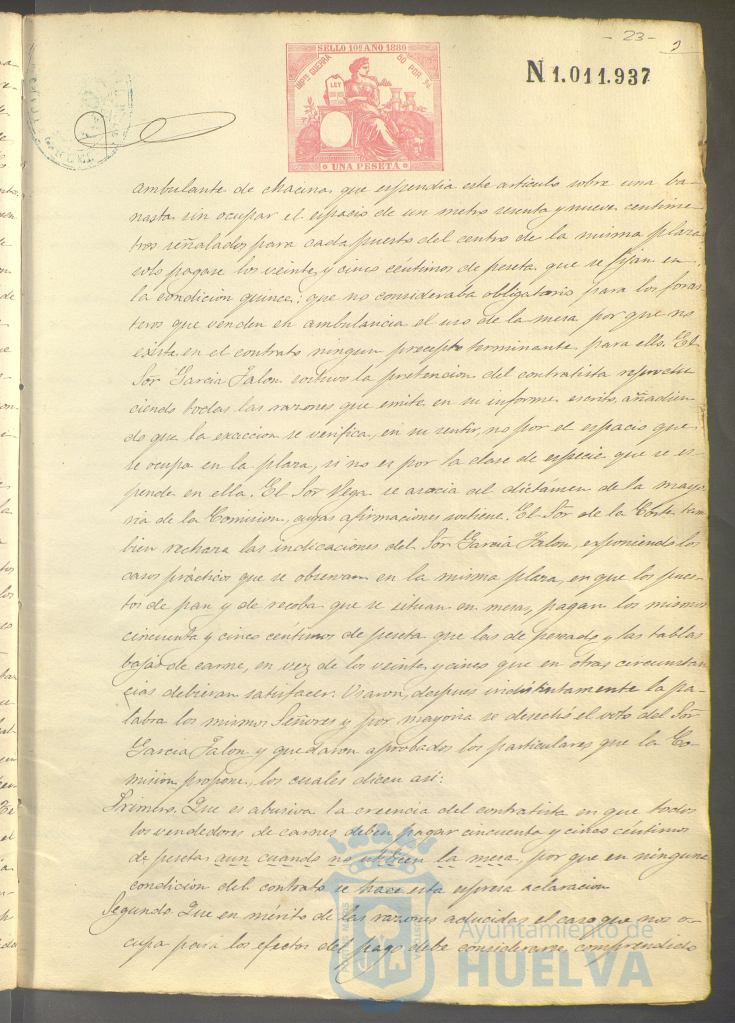 - 23 -
SELLO 10º AÑO 1880
IMPTO GUERRA
50 POR %
LEY
UNA PESETA
N 1.011.937
ambulante de chacina, que espendia este articulo sobre una ba-
nasta sin ocupar el espacio de un metro sesenta y nueve centime-
tros señalados para cada puesto del centro de la misma plaza,
solo pagase los veinte y cinco céntimos de peseta que se fijan en
la condición quince; que no consideraba obligatorio para los foras-
teros que venden en ambulancia el uso de la mesa por que no
existe en el contrato ningun precepto terminante para ello. El
Sor Garcia Jalon sostuvo la pretencion del contratista reprodu-
ciendo todas las razones que emite en su informe escrito, añadien-
do que la exaccion se verifica, en su sentir, no por el espacio que
se ocupa en la plaza, si no es por la clase de especie que se es-
pende en ella. El Sor Vega se asocia al dictámen de la mayo-
ria de la Comision, cuyas afirmaciones sostiene. El Sor de la Corte tam-
bien rechaza las indicaciones del Sor Garcia Jalon, esponiendo los
casos prácticos que se observan en la misma plaza, en que los pues-
tos de pan y de recoba que se situan en mesas, pagan los mismos
cincuenta y cinco céntimos de peseta que las de pescado y las tablas
bajas de carne, en vez de los veinte y cinco que en otras circunstan-
cias debieran satisfacer. Usaron, despues indistintamente la pa-
labra los mismos Señores y por mayoria se desechó el voto del Sor
Garcia Jalon y quedaron aprobados los particulares que la Co-
mision propone, los cuales dicen asi:
Primero. Que es abusiva la creencia del contratista en que todos
los vendedores de carnes deben pagar cincuenta y cinco céntimos
de pesetas aun cuando no utilicen la mesa, por que en ninguna
condicion del contrato se hace esta espresa aclaracion
Segundo. Que en mérito de las razones aducidas el caso que nos o-
cupa para los efectos del pago debe considerarse comprendido
Ayuntamiento de
HUELVA